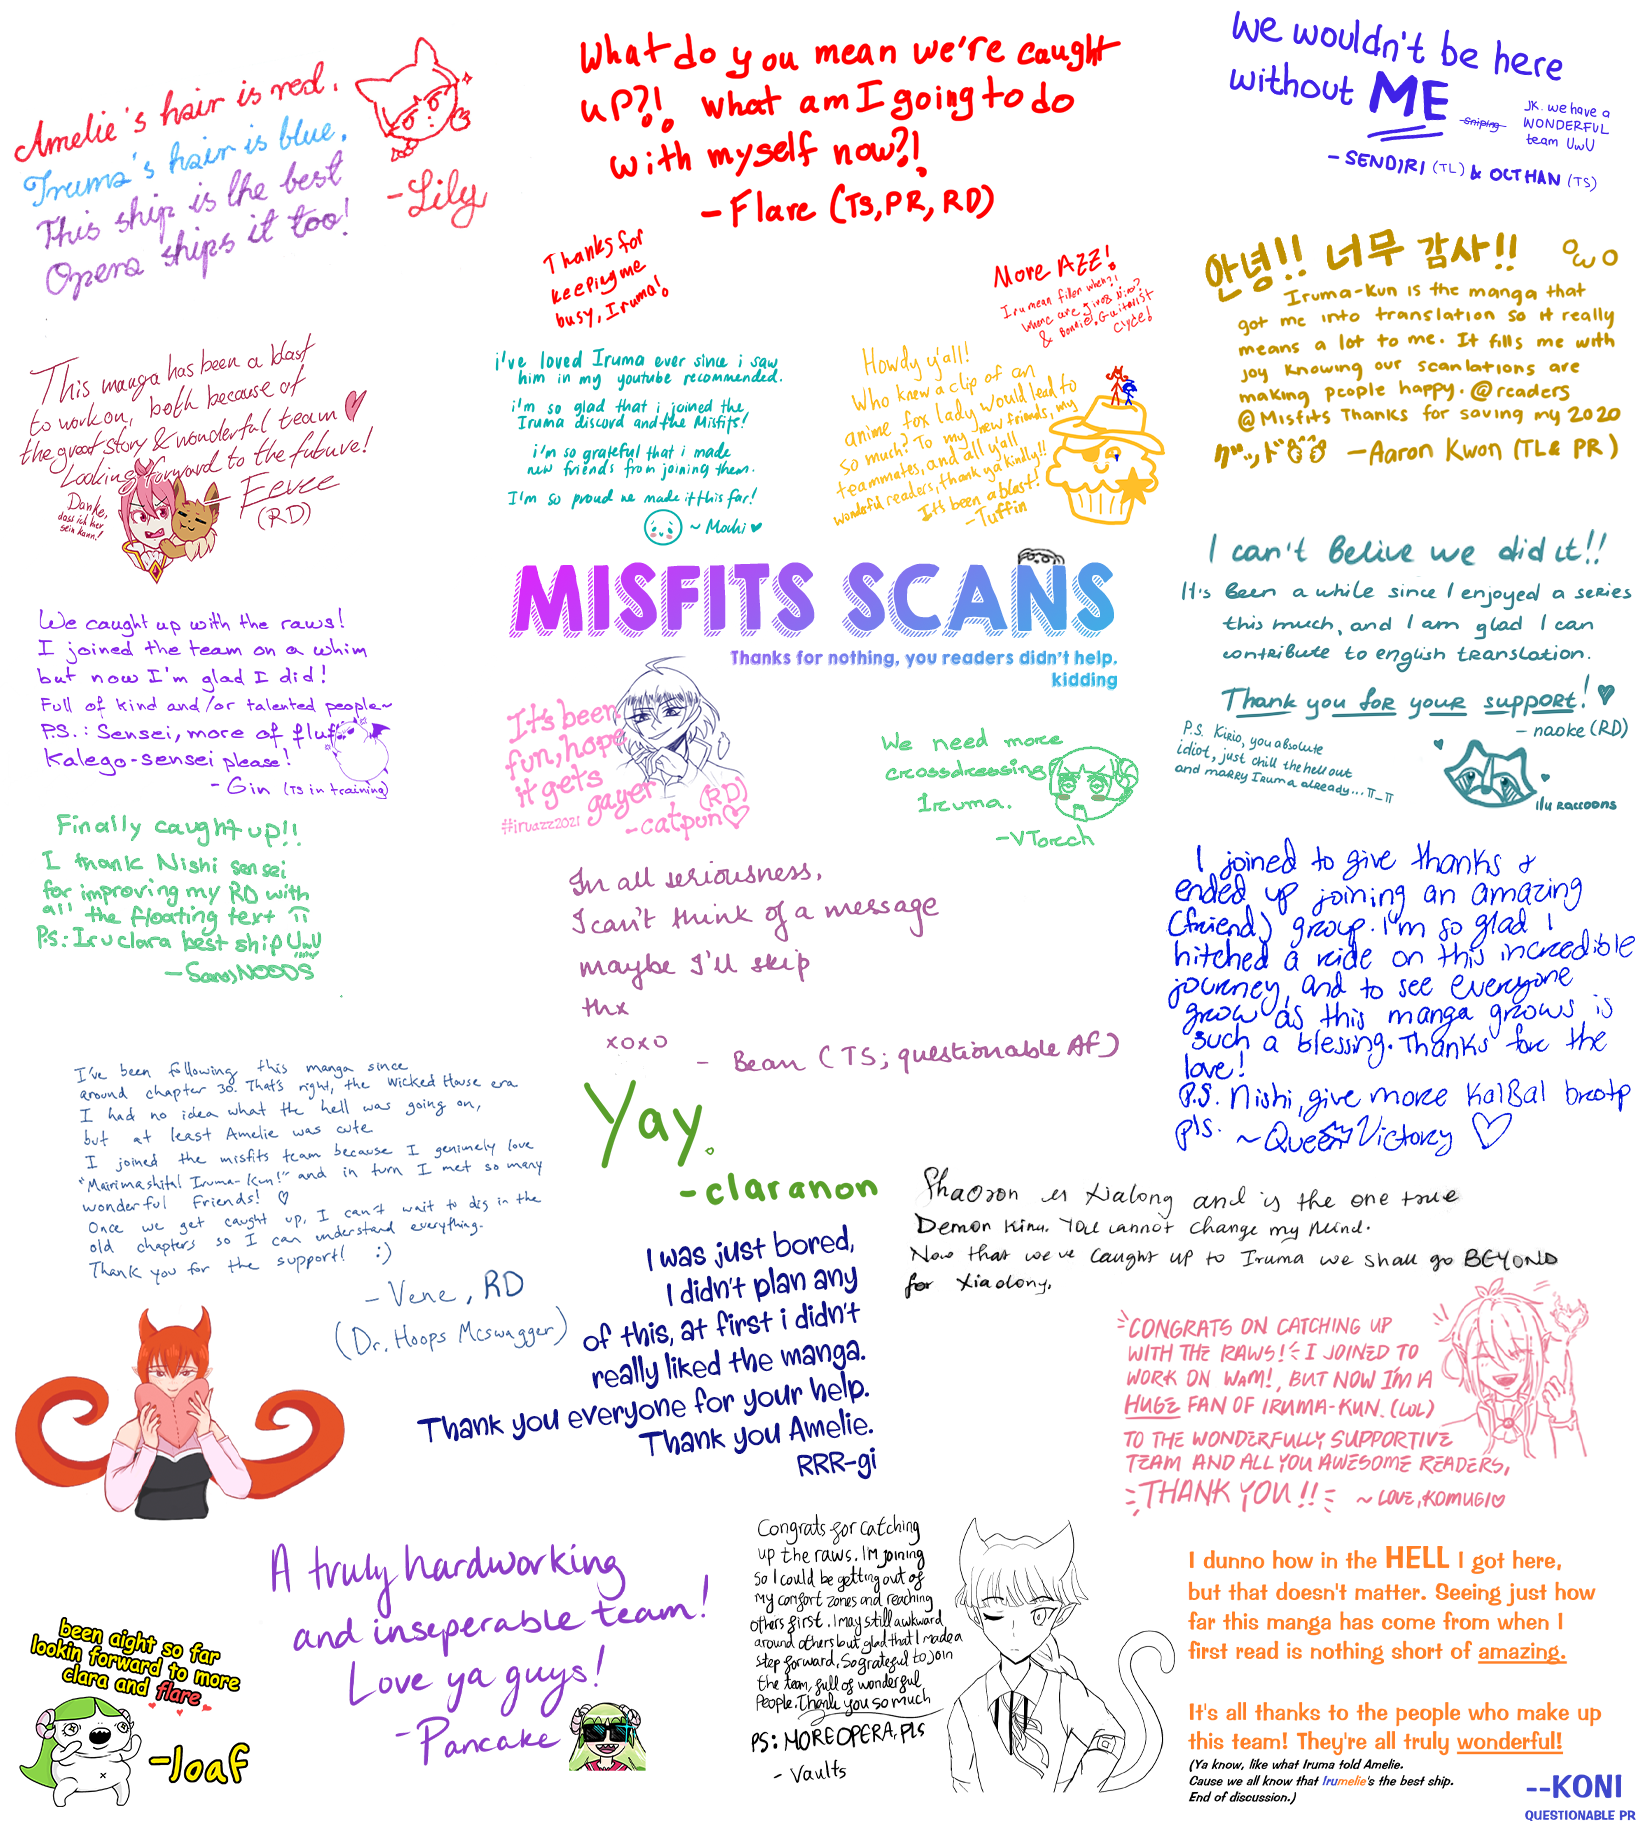 Amelie's hair is red.
Iruma's hair is blue.
This ship is the best
Opera ships it too!
-Lily
What do you mean we're caught
up?!, what am I going to do
with myself now?!
- Flare (TS, PR, RD)
we wouldn't be here
without ME
sniping
JK. we have a
WONDERFUL
team UwU
- SENDIRI (TL) & OCTHAN (TS)
Thanks for
keeping me
busy, Iruma!
More AZZ!
Irumean filler when?!
Where are give Nico?
& Bonnie, Guitarist
Clyde!
안녕!! 너무 감사!! OwO
Iruma-Kun is the manga that
got me into translation so it really
means a lot to me. It fills me with
joy knowing our scanlations are
making people happy. @readers
@Misfits Thanks for saving my 2020
- Aaron Kwon (TL & PR)
This manga has been a blast
to work on, both because of
the great story & wonderful team
Looking forward to the future!
Danke,
dass ich hier
sein kann!
- Eevee
(RD)
i've loved Iruma ever since i saw
him in my youtube recommended.
i'm so glad that i joined the
Iruma discord and the Misfits!
i'm so grateful that i made
new friends from joining them.
I'm so proud we made it this far!
~ Mochi
Howdy y'all!
Who knew a clip of an
anime fox lady would lead to
so much? To my new friends, my
teammates, and all y'all
wonderful readers, thank ya kindly!!
It's been a blast!
-Tuffin
MISFITS SCANS
Thanks for nothing, you readers didn't help.
kidding
I can't Belive we did it!!
It's Been a while since I enjoyed a series
this much, and I am glad I can
contribute to english translation.
Thank you for your support!
- naoke (RD)
P.S. Kirio, you absolute
idiot, just chill the hell out
and marry Iruma already... π_π
ilu raccoons
We caught up with the raws!
I joined the team on a whim
but now I'm glad I did!
Full of kind and/or talented people~
P.S.: Sensei, more of fluffy
Kalego-sensei please!
- Gin (TS in training)
It's been
fun, hope
it gets
gayer
#iruazz2021
(RD)
-catpun
We need more
crossdressing
Iruma.
-VTorch
Finally caught up!!
I thank Nishi sensei
for improving my RD with
all the floating text π
P.S: Iruclara best ship UwU
-SansyNOODS
In all seriousness,
I can't think of a message
maybe I'll skip
thx
xoxo
- Bean (TS; questionable AF)
I joined to give thanks &
ended up joining an amazing
(friend) group. I'm so glad I
hitched a ride on this incredible
journey, and to see everyone
grow as this manga grows is
such a blessing. Thanks for the
love!
P.S. Nishi, give more KalBal brotp
pls.
~Queen Victory
I've been following this manga since
around chapter 30. That's right, the Wicked House era
I had no idea what the hell was going on,
but at least Amelie was cute
I joined the misfits team because I genuinely love
"Mairimashita! Iruma-kun!" and in turn I met so many
wonderful Friends!
Once we get caught up, I can't wait to dig in the
old chapters so I can understand everything.
Thank you for the support! :)
- Vene, RD
(Dr. Hoops McSwagger)
Yay.
-claranon
Shaoron is Xialong and is the one true
Demon King. You cannot change my mind.
Now that we've caught up to Iruma we shall go BEYOND
for Xiaolong.
I was just bored,
I didn't plan any
of this, at first i didn't
really liked the manga.
Thank you everyone for your help.
Thank you Amelie.
RRR-gi
CONGRATS ON CATCHING UP
WITH THE RAWS! I JOINED TO
WORK ON WAM!, BUT NOW I'M A
HUGE FAN OF IRUMA-KUN. (LOL)
TO THE WONDERFULLY SUPPORTIVE
TEAM AND ALL YOU AWESOME READERS,
THANK YOU!!
~ LOVE, KOMUGI
A truly hardworking
and inseperable team!
Love ya guys!
-Pancake
been aight so far
lookin forward to more
clara and flare
-loaf
Congrats for catching
up the raws. I'm joining
so I could be getting out of
my comfort zones and reaching
others first. I may still awkward
around others but glad that I made a
step forward, So grateful to join
the team, full of wonderful
People. Thank you so much
PS: MORE OPERA, PLS
- Vaults
I dunno how in the HELL I got here,
but that doesn't matter. Seeing just how
far this manga has come from when I
first read is nothing short of amazing.
It's all thanks to the people who make up
this team! They're all truly wonderful!
(Ya know, like what Iruma told Amelie.
Cause we all know that Irumelie's the best ship.
End of discussion.)
--KONI
QUESTIONABLE PR